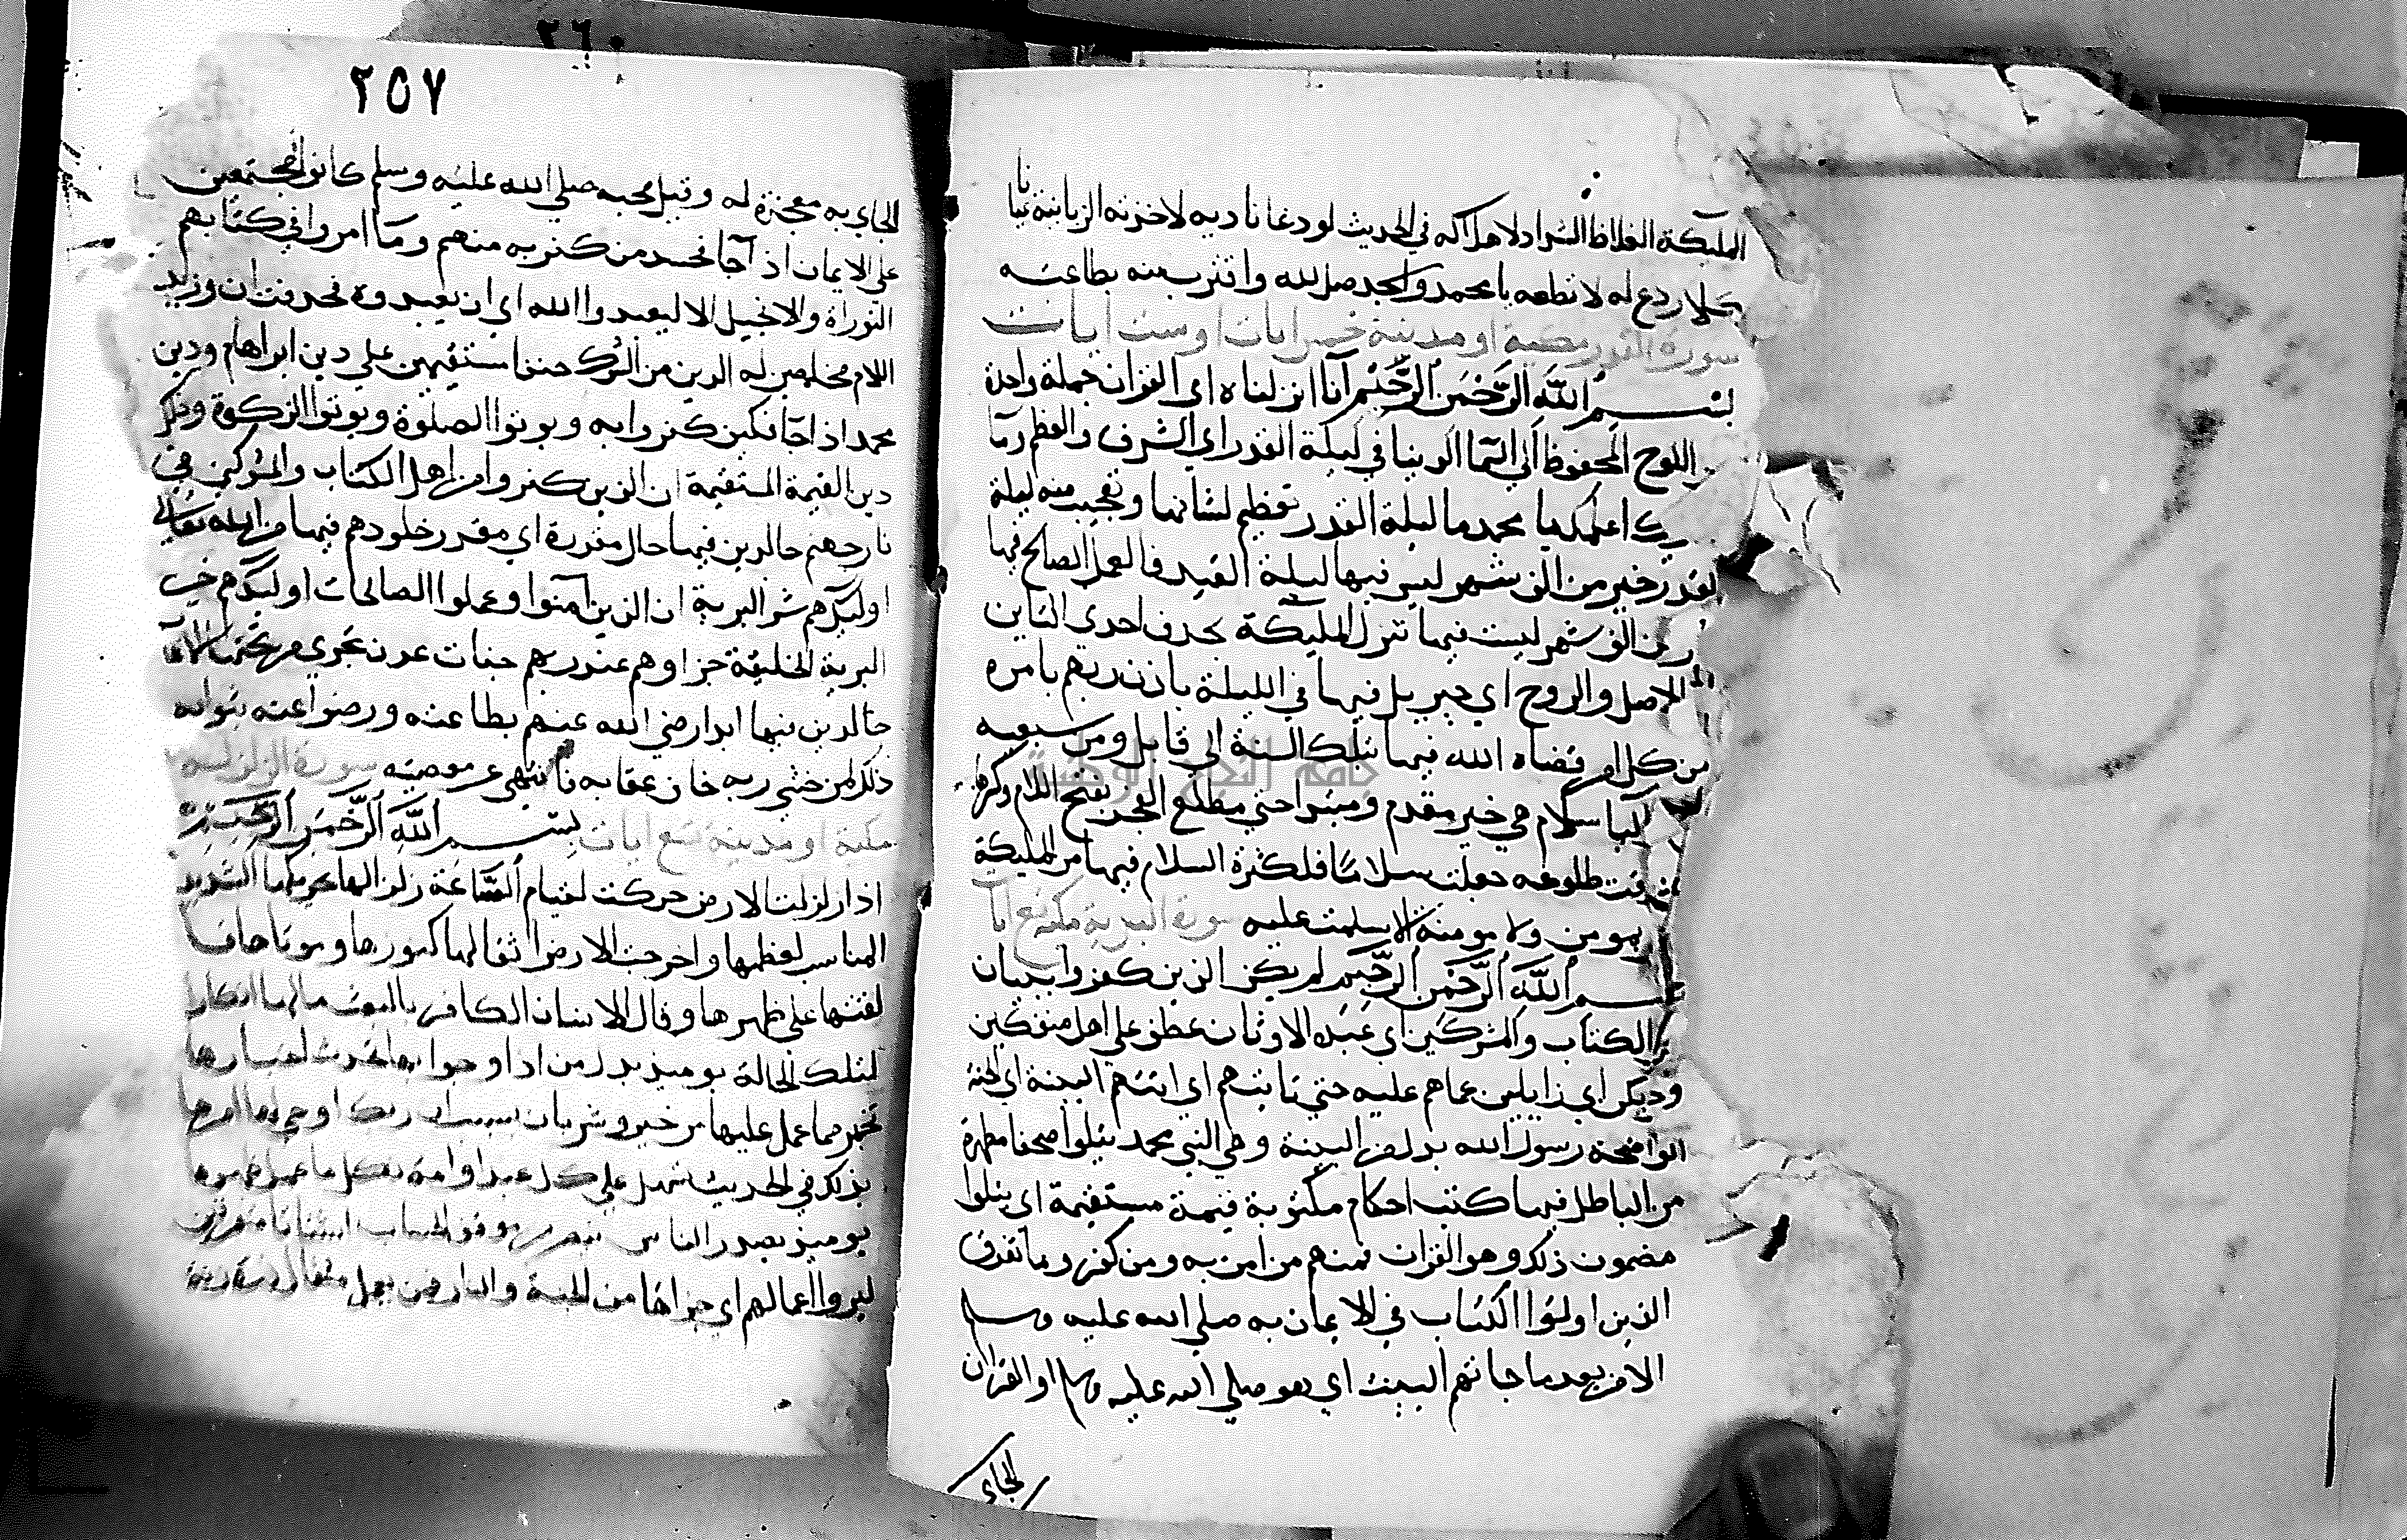 الملىكة الغلاظ الشداد لاهلاكه في الحديث لو دعا ناديه لاخذته الزبانية عيانا
كلا ردع له لا تطعه يا محمد واسجد صل لله واقترب منه بطاعته
سورة القدر مكية او مدنية خمس ايات او ست ايات
بسم الله الرحمن الرحيم انا انزلناه اي القران جملة واحدة
اللوح المحفوظ الي السما الدنيا في ليلة القدر اي الشرف والعظم وما
اعلمك يا محمد ما ليلة القدر تعظيم لشانها وتعجيب منه ليلة
القدر خير من الف شهر ليس فيها ليلة القدر فالعمل الصالح فيها
من الف شهر ليست فيها تنزل المليكة بحذف احدي التاين
الاصل والروح اي جبريل فيها في الليلة باذن ربهم بامره
من كل امر قضاه الله فيها لتلك السنة الي قابل ومن سببيه
سلام هي خبر مقدم ومبتدا حتي مطلع الفجر بفتح اللام وكسرها
وقت طلوعه جعلت سلاما لكثرة السلام فيها من المليكة
بمومن ولا مومنة الا سلمت عليه سورة البرية مكية تسع ايا
بسم الله الرحمن الرحيم لم يكن الذين كفروا من للبيان
الكتاب والمشركين اي عبدة الاوثان عطف علي اهل منفكين
خبر يكن اي زايلين عما هم عليه حتي تاتيهم اي اتتهم البينة اي الحجة
الواضحة رسول الله بدل من البينة وهي النبي محمد يتلوا صحفا مطهرة
من الباطل فيها كتب احكام مكتوبة قيمة مستقيمة اي يتلوا
مضمون ذلك وهو القران فمنهم من امن به ومن كفر وما تفرق
الذين اوتوا الكتاب في الايمان به صلي الله عليه وسلم
الا من بعد ما جاتهم البينة اي هو صلي الله عليه وسلم او القران
الجاي
٢٦٠
٢٥٧
الجاي به معجزة له وقبل مجيه صلي الله عليه وسلم كانوا مجتمعين
علي الايمان اذ اجا فحسد من كفر به منهم وما امروا في كتابهم
التوراة والانجيل الا ليعبدوا الله اي ان يعبدوه فحذفت ان وزيد
اللام مخلصين له الدين من الشرك حنفا مستقيمين علي دين ابراهام ودين
محمد اذ اجا فكيف كفروا به ويوتوا الصلوة ويوتوا الزكوة وذلك
دين القيمة المستقيمة ان الذين كفروا من اهل الكتاب والمشركين في
نار جهنم خالدين فيها حال مقدرة اي مقدر خلودهم فيها من الله تعالي
اوليك هم شر البرية ان الذين امنوا وعملوا الصالحات اوليك هم خير
البرية الخليقة جزاوهم عند ربهم جنات عدن تجري من تحتها الانها
خالدين فيها ابدا رضي الله عنهم بطاعته ورضوا عنه بثوابه
ذلك لمن خشي ربه خاف عقابه فانتهي عن معصيته سورة الزلزلة
مكية او مدنية تسع ايات بسم الله الرحمن الرحيم
اذا زلزلت الارض حركت لقيام الساعة زلزالها تحريكها الشديد
المناسب لعظمها واخرجت الارض اثقالها كنوزها وموتاها
فالقتها علي ظهرها وقال الانسان الكافر بالبعث ما لها انكارا
لتلك الحالة يوميذ بدل من اذا وجوابها تحدث اخبارها
تخبر بما عمل عليها من خير وشر بان بسبب ان ربك اوحي لها امرها
بذلك في الحديث تشهد علي كل عبد او امة بكل ما عمل علي ظهرها
يوميذ يصدر الناس ينصرفون من موقف الحساب اشتاتا متفرقين
ليروا اعمالهم اي جزاها من الجنة والنار فمن يعمل مثقال ذرة
جامعة النجاح الوطنية